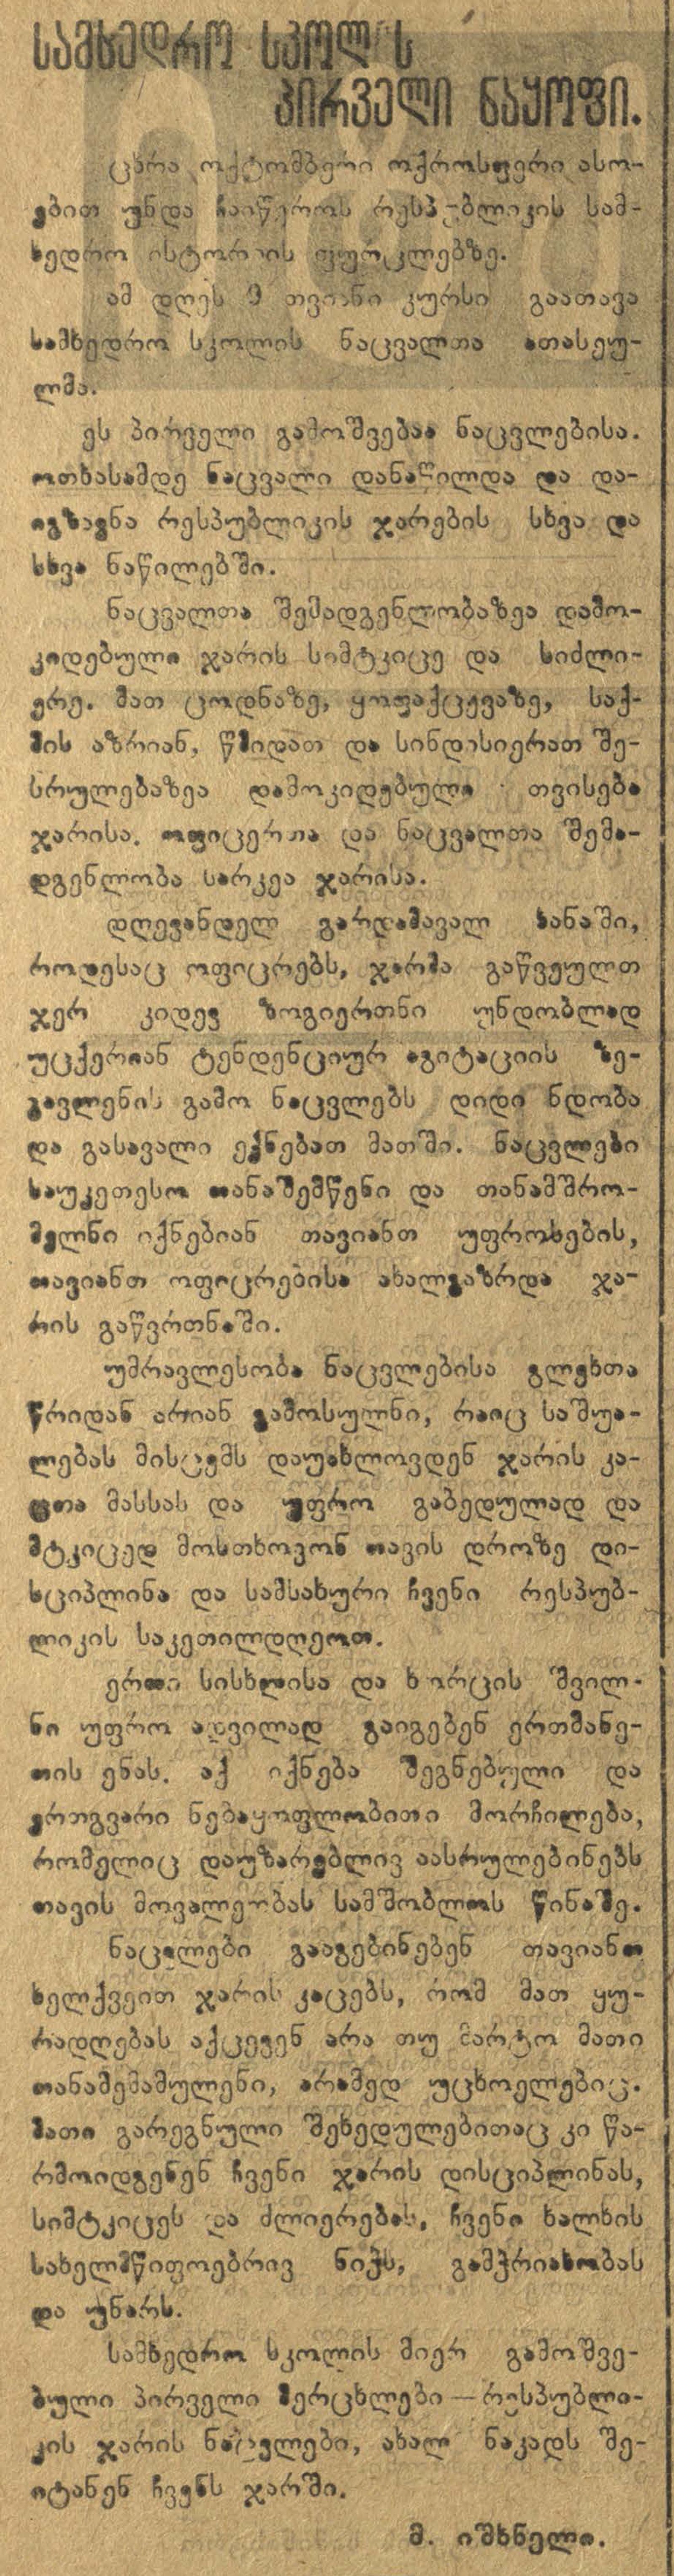 სამხედრო სკოლის
პირველი ნაყოფი.
ცხრა ოქტომბერი ოქროსფერი ასო-
ებით უნდა ჩაიწეროს რესპუბლიკის სამ-
ხედრო ისტორიის ფურცლებზე.
ამ დღეს 9 თვიანი კურსი გაათავა
სამხედრო სკოლის ნაცვალთა ათასეუ-
ლმა.
ეს პირველი გამოშვებაა ნაცვლებისა.
ოთხასამდე ნაცვალი დანაწილდა და და-
იგზავნა რესპუბლიკის ჯარების სხვა და
სხვა ნაწილებში.
ნაცვალთა შემადგენლობაზეა დამო-
კიდებული ჯარის სიმტკიცე და სიძლი-
ერე. მათ ცოდნაზე, ყოფაქცევაზე, საქ-
მის აზრიან, წმიდათ და სინდისიერათ შე-
სრულებაზეა დამოკიდებული თვისება
ჯარისა. ოფიცერთა და ნაცვალთა შემა-
დგენლობა სარკეა ჯარისა.
დღევანდელ გარდამავალ ხანაში,
როდესაც ოფიცრებს, ჯარში გაწვეულთ
ჯერ კიდევ ზოგიერთნი უნდობლად
უცქერიან ტენდენციურ აგიტაციის ზე-
გავლენის გამო ნაცვლებს დიდი ნდობა
და გასავალი ექნებათ მათში. ნაცვლები
საუკეთესო თანაშემწენი და თანამშრო-
მელნი იქნებიან თავიანთ უფროსების,
თავიანთ ოფიცრებისა ახალგაზრდა ჯა-
რის გაწვრთნაში.
უმრავლესობა ნაცვლებისა გლეხთა
წრიდან არიან გამოსულნი, რაიც საშუა-
ლებას მისცემს დაუახლოვდენ ჯარის კა-
ცთა მასსას და უფრო გაბედულად და
მტკიცედ მოსთხოვონ თავის დროზე დი-
სციპლინა და სამსახური ჩვენი რესპუბ-
ლიკის საკეთილდღეოთ.
ერთი სისხლისა და ხორცის შვილ-
ნი უფრო ადვილად გაიგებენ ერთმანე-
თის ენას. აქ იქნება შეგნებული და
ერთგვარი ნებაყოფლობითი მორჩილება,
რომელიც დაუზარებლივ აასრულებინებს
თავის მოვალეობას სამშობლოს წინაშე.
ნაცვლები გააგებინებენ თავიანთ
ხელქვეით ჯარის კაცებს, რომ მათ ყუ-
რადღებას აქცევენ არა თუ მარტო მათი
თანამემამულენი, არამედ უცხოელებიც.
მათი გარეგნული შეხედულებითაც კი წა-
რმოიდგენენ ჩვენი ჯარის დისციპლინას,
სიმტკიცეს და ძლიერებას, ჩვენი ხალხის
სახელმწიფოებრივ ნიჭს, გამჭრიახობას
და უნარს.
სამხედრო სკოლის მიერ გამოშვე-
ბული პირველი მერცხლები — რესპუბლი-
კის ჯარის ნაცვლები, ახალ ნაკადს შე-
იტანენ ჩვენს ჯარში.
მ. იშხნელი.